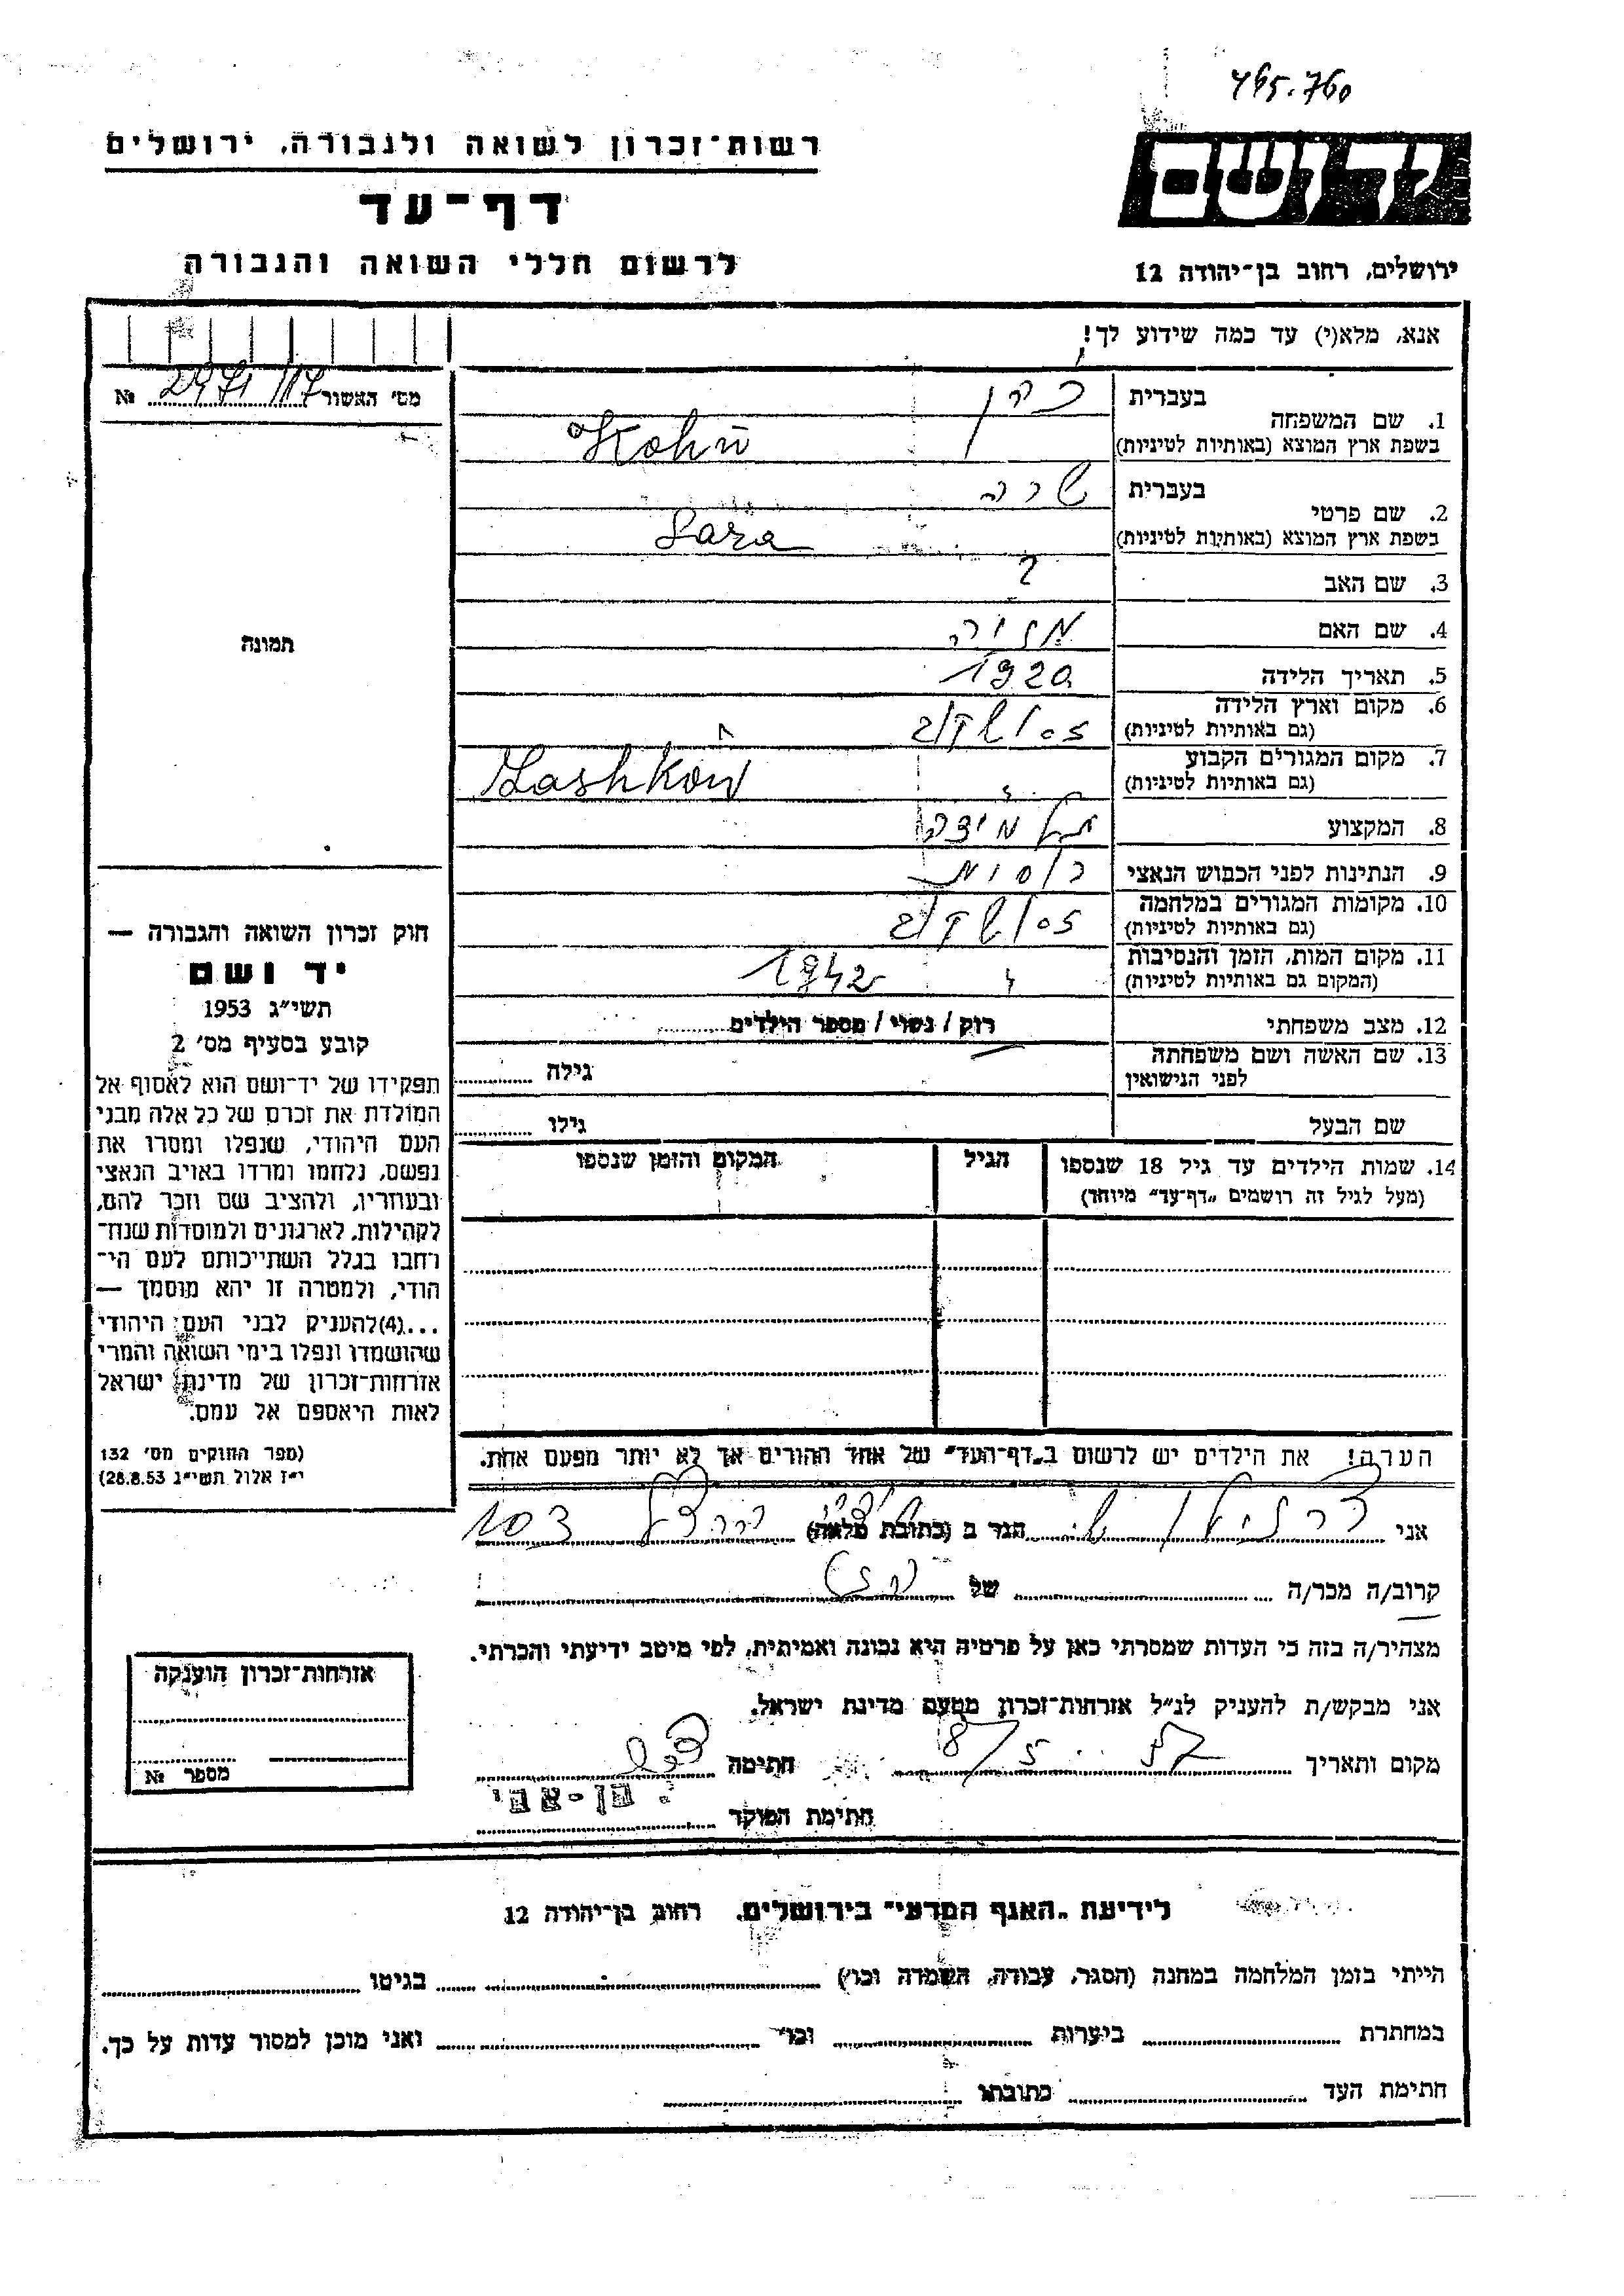 465.760
רשות־זכרון לשואה ולגבורה, ירושלים
יד ושם
דף־עד
לרשום חללי השואה והגבורה
ירושלים, רחוב בן־יהודה 12
אנא, מלא(י) עד כמה שידוע לך!
מס׳ האשור 117 2971 №
בעברית כהן
1. שם המשפחה
בשפת ארץ המוצא (באותיות לטיניות) Kohn
בעברית שרה
2. שם פרטי
בשפת ארץ המוצא (באותיות לטיניות) Sara
3. שם האב ?
4. שם האם מניה
5. תאריך הלידה 1920
6. מקום וארץ הלידה
(גם באותיות לטיניות)
7. מקום המגורים הקבוע
(גם באותיות לטיניות) Zashkow
8. המקצוע תלמידה
9. הנתינות לפני הכבוש הנאצי רוסית
10. מקומות המגורים במלחמה
(גם באותיות לטיניות)
11. מקום המות, הזמן והנסיבות
(המקום גם באותיות לטיניות) 1942
12. מצב משפחתי רוק / נשוי / מספר הילדים
13. שם האשה ושם משפחתה
לפני הנישואין גילה
שם הבעל גילו
14. שמות הילדים עד גיל 18 שנספו
(מעל לגיל זה רושמים „דף־עד” מיוחד)
הגיל
המקום והזמן שנספו
הערה! את הילדים יש לרשום ב„דף־העד” של אחד ההורים אך לא יותר מפעם אחת.
תמונה
חוק זכרון השואה והגבורה —
יד ושם
תשי״ג 1953
קובע בסעיף מס׳ 2
תפקידו של יד־ושם הוא לאסוף אל
המולדת את זכרם של כל אלה מבני
העם היהודי, שנפלו ומסרו את
נפשם, נלחמו ומרדו באויב הנאצי
ובעוזריו, ולהציב שם וזכר להם,
לקהילות, לארגונים ולמוסדות שנח־
רחבו בגלל השתייכותם לעם הי־
הודי, ולמטרה זו יהא מוסמך —
...(4)להעניק לבני העם היהודי
שהושמדו ונפלו בימי השואה והמרי
אזרחות־זכרון של מדינת ישראל
לאות היאספם אל עמם.
(ספר החוקים מס׳ 132
י״ז אלול תשי״ג 28.8.53)
אני הגר ב (כתובת מלאה) הרצל 103
קרוב/ה מכר/ה של
מצהיר/ה בזה כי העדות שמסרתי כאן על פרטיה היא נכונה ואמיתית, לפי מיטב ידיעתי והכרתי.
אני מבקש/ת להעניק לנ״ל אזרחות־זכרון מטעם מדינת ישראל.
מקום ותאריך 8/5 57 חתימה
חתימת הפוקד בן-אבי
אזרחות־זכרון הוענקה
מספר №
לידיעת „האגף המדעי” בירושלים, רחוב בן־יהודה 12
הייתי בזמן המלחמה במחנה (הסגר, עבודה, השמדה וכו׳) בגיטו
במחתרת ביערות וכו׳ ואני מוכן למסור עדות על כך.
חתימת העד כתובתו